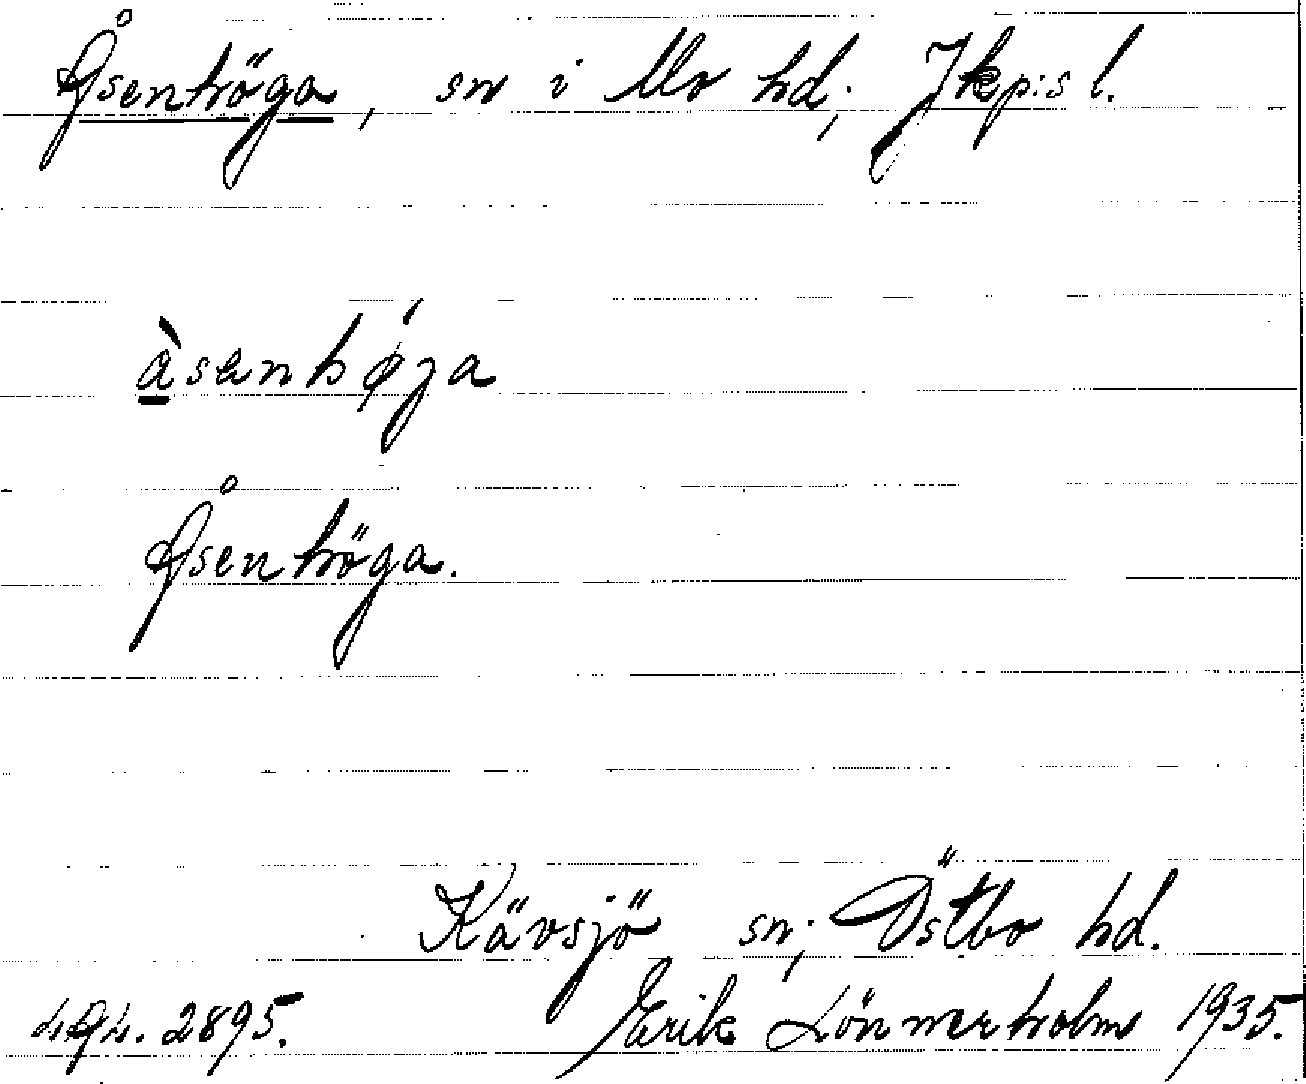 Åsenhöga, sn i Mo hd, Jkp:s l.
àsenhǿja
Åsenhöga.
Kävsjö sn, Östbo hd.
Erik Lönnerholm 1935.
2895.